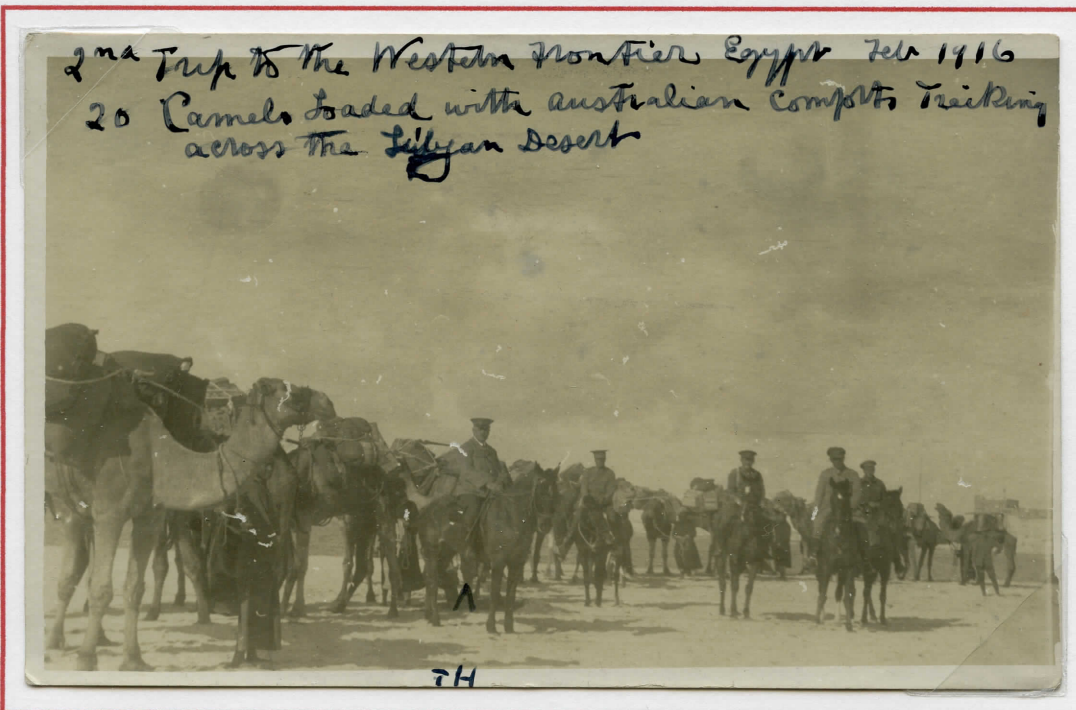 2nd Trip to the Western Frontier Egypt Feb 1916
20 Camels Loaded with Australian Comforts Treiking
across the Libyan Desert
TH